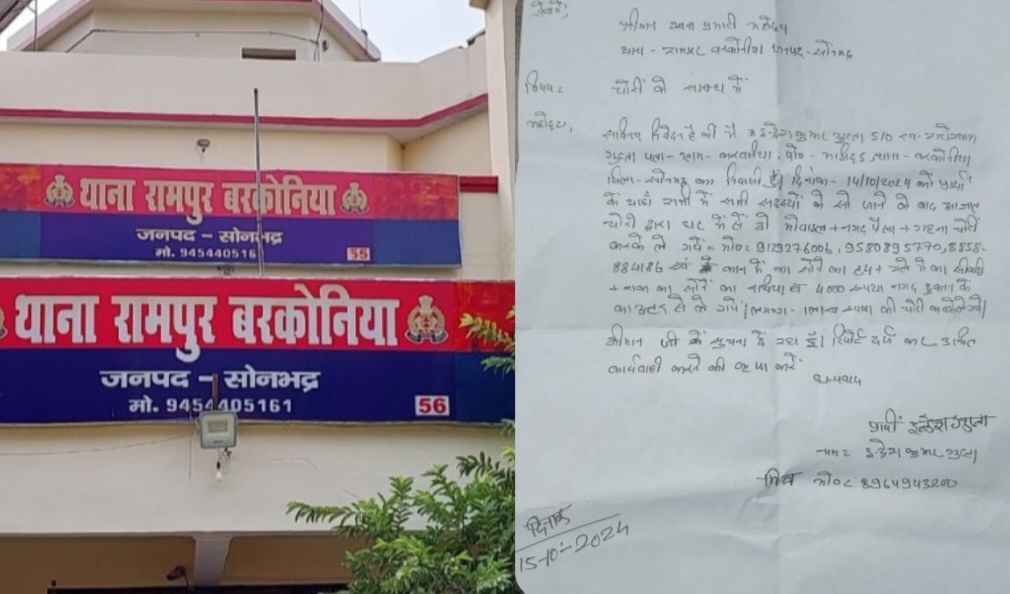 थाना रामपुर बरकोनिया
जनपद - सोनभद्र
मो. 945440516
55
थाना रामपुर बरकोनिया
जनपद - सोनभद्र
मो. 9454405161
56
सेवा में,
श्रीमान थाना प्रभारी महोदय
थाना - रामपुर बरकोनिया जनपद - सोनभद्र
विषय: चोरी के सम्बन्ध में
महोदय,
सविनय निवेदन है की मैं कुमार गुप्ता S/O स्व.
गुप्ता पता - ग्राम - पो० - थाना - बरकोनिया
जिला - सोनभद्र का निवासी हूँ। दिनांक - 14/10/2024 को प्रार्थी
के यहाँ रात्री में सभी सदस्यों के सो जाने के बाद अज्ञात
चोरों द्वारा घर में से दो मोबाइल + नगद पैसा + गहना चोरी
करके ले गये = मो०: 9129276006, 9580895770, 8858-
884186 एवं कान में का सोने का + गले में का
+ नाक का सोने का 4000 रूपया नगद दुकान के
काउन्टर से ले गये।
श्रीमान जी को सूचना दे रहा हूँ। रिपोर्ट दर्ज कर उचित
कार्यवाही करने की कृपा करें
धन्यवाद
प्रार्थी
नाम: कुमार गुप्ता
मो०: 8964943200
दिनांक
15-10-2024